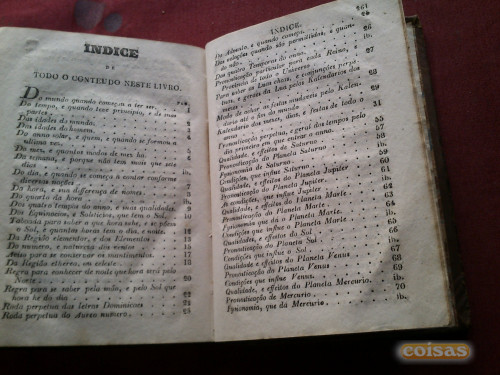 ÍNDICE
DE
TODO O CONTEUDO NESTE LIVRO.
PAG.
Do mundo quando começou a ter ser
Do tempo, e quando teve principio, e de suas
partes 1
Das idades do mundo 3
Das idades do homem
Do anno solar, e quem, e quando se formou a
ultima vez
Do mez, e quantos modos de mez ha
Da semana, e porque não tem mais que sete
dias
Do dia, e quando se começa a contar conforme
diversas nações
Da hora, e sua differença de nomes
Do quarto da hora
Dos quatro Tempos do anno, e suas qualidades
Dos Equinocios, e Solsticios, que tem o Sol
Taboada para saber a que hora nahe, e se põe
o Sol, e quantas horas tem o dia, e noite 16
Da Região elementar, e dos Elementos
Do numero, e naturesa dos ventos 15
Aviso para se conservar os mantimentos 17
Da Região etherea, ou celeste 18
Regra para conhecer de noite que horas são pelo
Norte 20
Regra para se saber pela mão, e pelo Sol que
hora he do dia
Roda perpetua das letras Dominicaes 22
Roda perpetua do Aureo numero 25
ÍNDICE. 261
Do Advento, e quando começa 26
Das velações quando são permittidas, e quando
não
Das quatro Temporas do anno 27
Pronosticação particular para cada Reino, e
Provincia de todo o Universo ib.
Para saber as Luas novas, e conjunções perpetuas,
e geraes da Lua pelos Kalendarios dos
mezes 28
Modo de saber as festas mudaveis pelo Kalendario
até o fim do mundo 29
Kalendario dos mezes, dias, e festas de todo o
anno 31
Pronosticação perpetua, e geral dos tempos pelo
dia primeiro em que entrar o anno 55
Qualidade, e effeitos do Planeta Saturno 57
Pronosticação de Saturno 58
Fysionomia de Saturno ib.
Condições, que influe Saturno 59
Qualidade, e effeitos do Planeta Jupiter 60
Pronosticação do Planeta Jupiter 61
Condições, que influe Jupiter ib.
Qualidade, e effeitos do Planeta Marte 62
Pronosticação do Planeta Marte 63
Condições, que influe o Planeta Marte 64
Qualidade, e effeitos do Planeta Sol 65
Pronosticação do Planeta Sol 66
Condições que influe o Sol ib.
Qualidade, e effeitos do Planeta Venus 67
Pronosticação do Planeta Venus 68
Condições que influe Venus ib.
Qualidade, e effeitos do Planeta Mercurio 69
Pronosticação de Mercurio 70
Fysionomia, que da Mercurio ib.
coisas